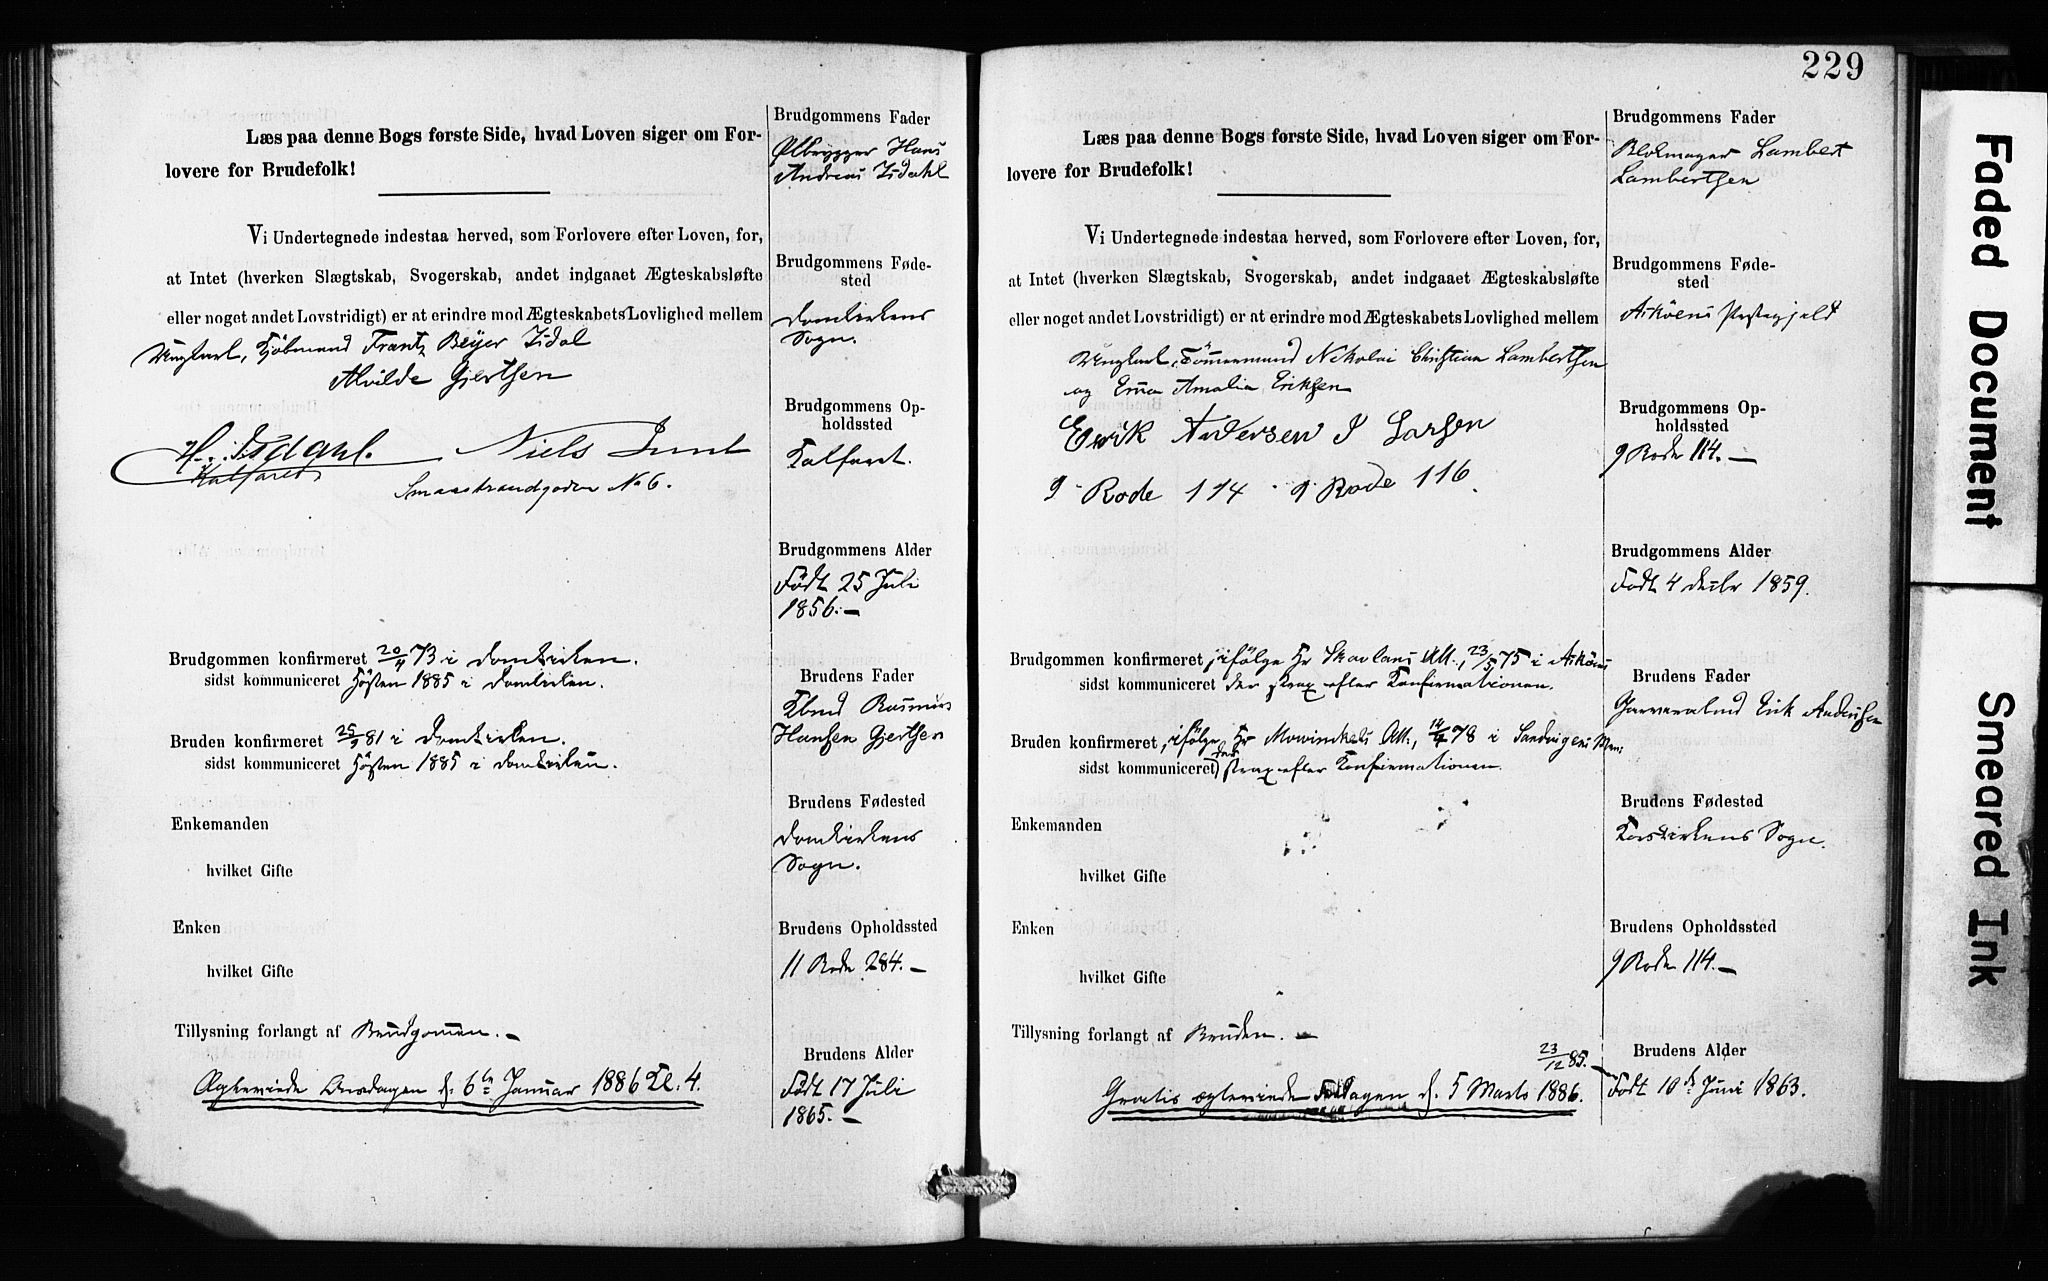 Læs paa denne Bogs første Side, hvad Loven siger om For-
lovere for Brudefolk!
Vi Undertegnede indestaa herved, som Forlovere efter Loven, for,
at Intet (hverken Slægtskab, Svogerskab, andet indgaaet Ægteskabsløfte
eller noget andet Lovstridigt) er at erindre mod Ægteskabets Lovlighed mellem
Ungkarl, Kjöbmand Frantz Beyer Isdal
Alvilde Gjertsen
H. Isdahl. Niels Lund
Kalfaret
Smaastrandgaden No 6.
Brudgommen konfirmeret 20/4 73 i Domkirken.
sidst kommuniceret Høsten 1885 i Domkirken.
Bruden konfirmeret 25/9 81 i Domkirken.
sidst kommuniceret Høsten 1885 i Domkirken.
Enkemanden
hvilket Gifte
Enken
hvilket Gifte
Tillysning forlangt af Brudgommen. –
Ægteviede Onsdagen d. 6te Januar 1886 Kl. 4.
Brudgommens Fader
Ølbrygger Hans
Andreas Isdahl
Brudgommens Føde-
sted
Domkirkens
Sogn.
Brudgommens Op-
holdssted
Kalfaret.
Brudgommens Alder
Født 25 Juli
1856. –
Brudens Fader
Kbmd Rasmus
Hansen Gjertsen
Brudens Fødested
Domkirkens
Sogn.
Brudens Opholdssted
11 Rode 284. –
Brudens Alder
Født 17 Juli
1865. –
229
Læs paa denne Bogs første Side, hvad Loven siger om For-
lovere for Brudefolk!
Vi Undertegnede indestaa herved, som Forlovere efter Loven, for,
at Intet (hverken Slægtskab, Svogerskab, andet indgaaet Ægteskabsløfte
eller noget andet Lovstridigt) er at erindre mod Ægteskabets Lovlighed mellem
Ungkarl, Tömmermand Nikolai Christian Lambertsen
og Emma Amalia Eriksen
Erik Andersen I Larsen
9 Rode 114 9 Rode 116
Brudgommen konfirmeret, ifølge Hr Skavlans Att., 23/5 75 i Askøens
sidst kommuniceret der strax efter Konfirmationen.
Bruden konfirmeret, ifølge Hr Mowinckels Att., 14/4 78 i Sandvigens Men:
sidst kommuniceret der strax efter Konfirmationen.
Enkemanden
hvilket Gifte
Enken
hvilket Gifte
Tillysning forlangt af Bruden. –
23/12 85. –
Gratis ægteviede Fredagen d. 5 Marts 1886.
Brudgommens Fader
Blokmager Lambert
Lambertsen
Brudgommens Føde-
sted
Askøens Prestegjeld
Brudgommens Op-
holdssted
9 Rode 114. –
Brudgommens Alder
Født 4 Decbr 1859.
Brudens Fader
Garversvend Erik Andersen
Brudens Fødested
Korskirkens Sogn.
Brudens Opholdssted
9 Rode 114. –
Brudens Alder
Født 10de Juni 1863.
Faded Document
Smeared Ink